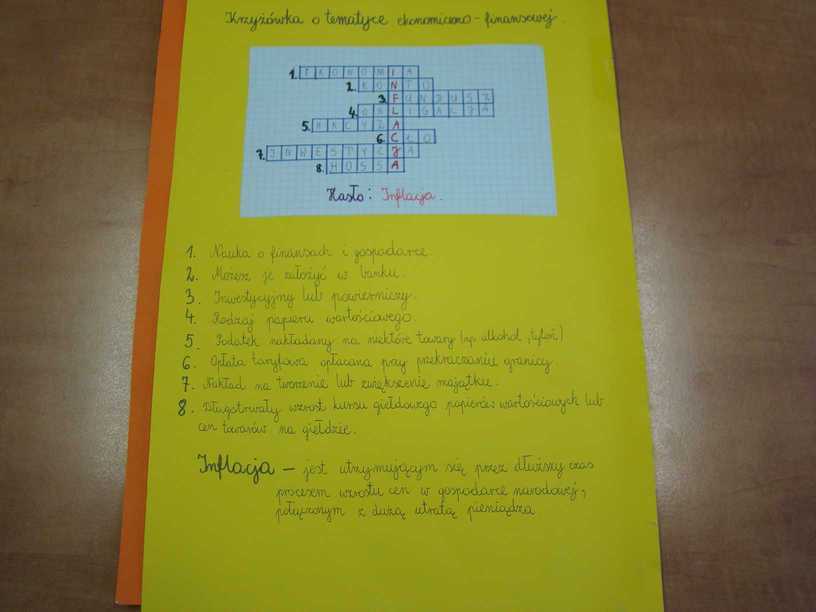 Krzyżówka o tematyce ekonomiczno - finansowej.
1. EKONOMIA
2. KONTO
3. FUNDUSZ
4. OBLIGACJA
5. AKCYZA
6. CŁO
7. INWESTYCJA
8. HOSSA
Hasło: Inflacja.
1. Nauka o finansach i gospodarce.
2. Możesz je założyć w banku.
3. Inwestycyjny lub powierniczy.
4. Rodzaj papieru wartościowego.
5. Podatek nakładany na niektóre towary (np. alkohol, tytoń)
6. Opłata taryfowa opłacana przy przekraczaniu granicy.
7. Nakład na tworzenie lub zwiększenie majątku.
8. Długotrwały wzrost kursu giełdowego papierów wartościowych lub
cen towarów na giełdzie.
Inflacja – jest utrzymującym się przez dłuższy czas
procesem wzrostu cen w gospodarce narodowej,
połączonym z dużą utratą pieniądza